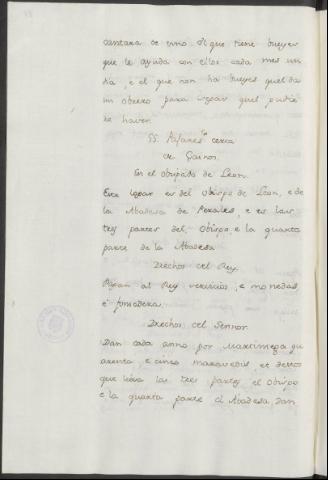 cantara de vino. El que tiene bueyes
que le ayuda con ellos cada mes un
dia, e el que non ha bueyes quel da
un obrero para cavar quel pudie
re haver.
§§. Pajares cerca
de
En el obispado de Leon.
Este logar es del obispo de Leon, e de
la Abadesa de Perales, e es las
tres partes del Obispo e la quarta
parte de la Abadesa
Drechos del Rey.
Pagan al Rey servicios, e monedas
e fonsadera.
Drechos del Sennor.
Dan cada anno por Martiniega qu
arenta e cinco maravedis, et destos
que lieva las tres partes el obispo
e la quarta parte el Abadesa. Dan